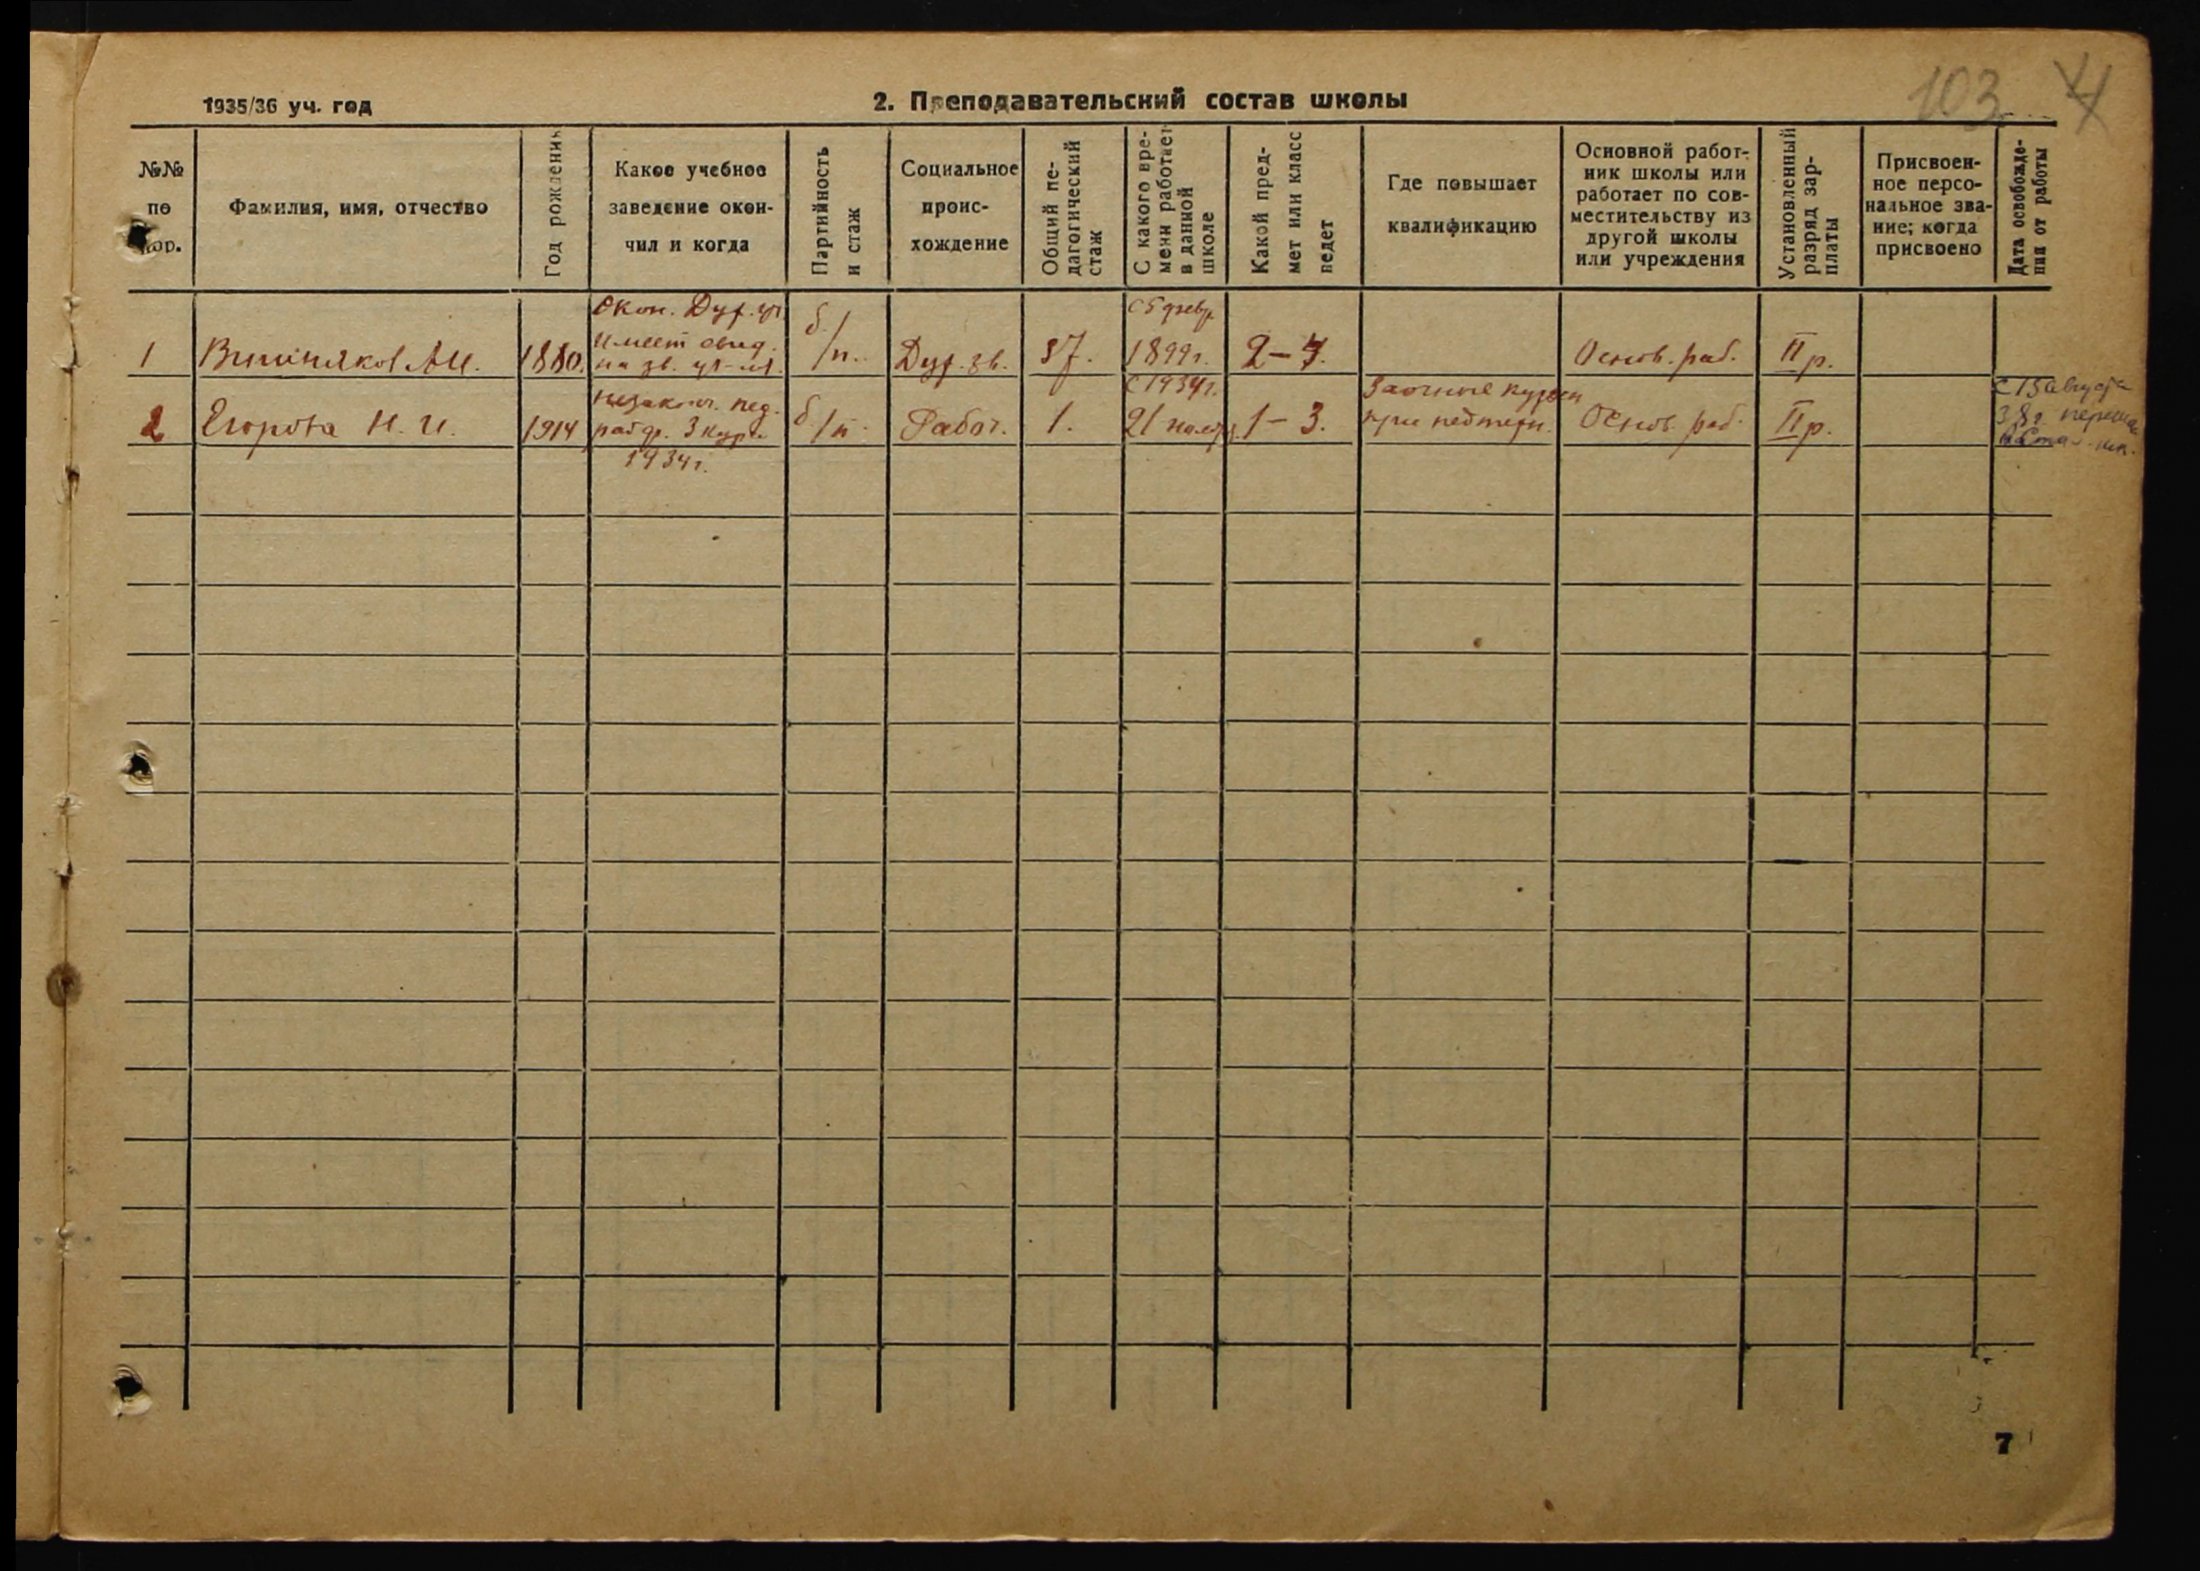 103
4
1935/36 уч. год
2. Преподавательский состав школы
№№
по
пор.
Фамилия, имя, отчество
Год рождения
Какое учебное
заведение окон-
чил и когда
Партийность
и стаж
Социальное
проис-
хождение
Общий пе-
дагогический
стаж
С какого вре-
мени работает
в данной
школе
Какой пред-
мет или класс
ведет
Где повышает
квалификацию
Основной работ-
ник школы или
работает по сов-
местительству из
другой школы
или учреждения
Установленный
разряд зар-
платы
Присвоен-
ное персо-
нальное зва-
ние; когда
присвоено
Дата освобожде-
ния от работы
1
Вишняков А.И.
1880.
Окон. Дух. уч.
Имеет свид.
на зв. уч-ля.
б/п.
Дух. зв.
37.
С 5 февр.
1899 г.
2-4.
Основ. раб.
II р.
2
Егорова Н. И.
1914
Незаконч. пед.
рабф. 3 курса
1934 г.
б/п
Рабоч.
1.
С 1934 г.
21 нояб.
1-3.
Заочные курсы
при педтехн.
Основ. раб.
II р.
С 15 августа
38 г.
7